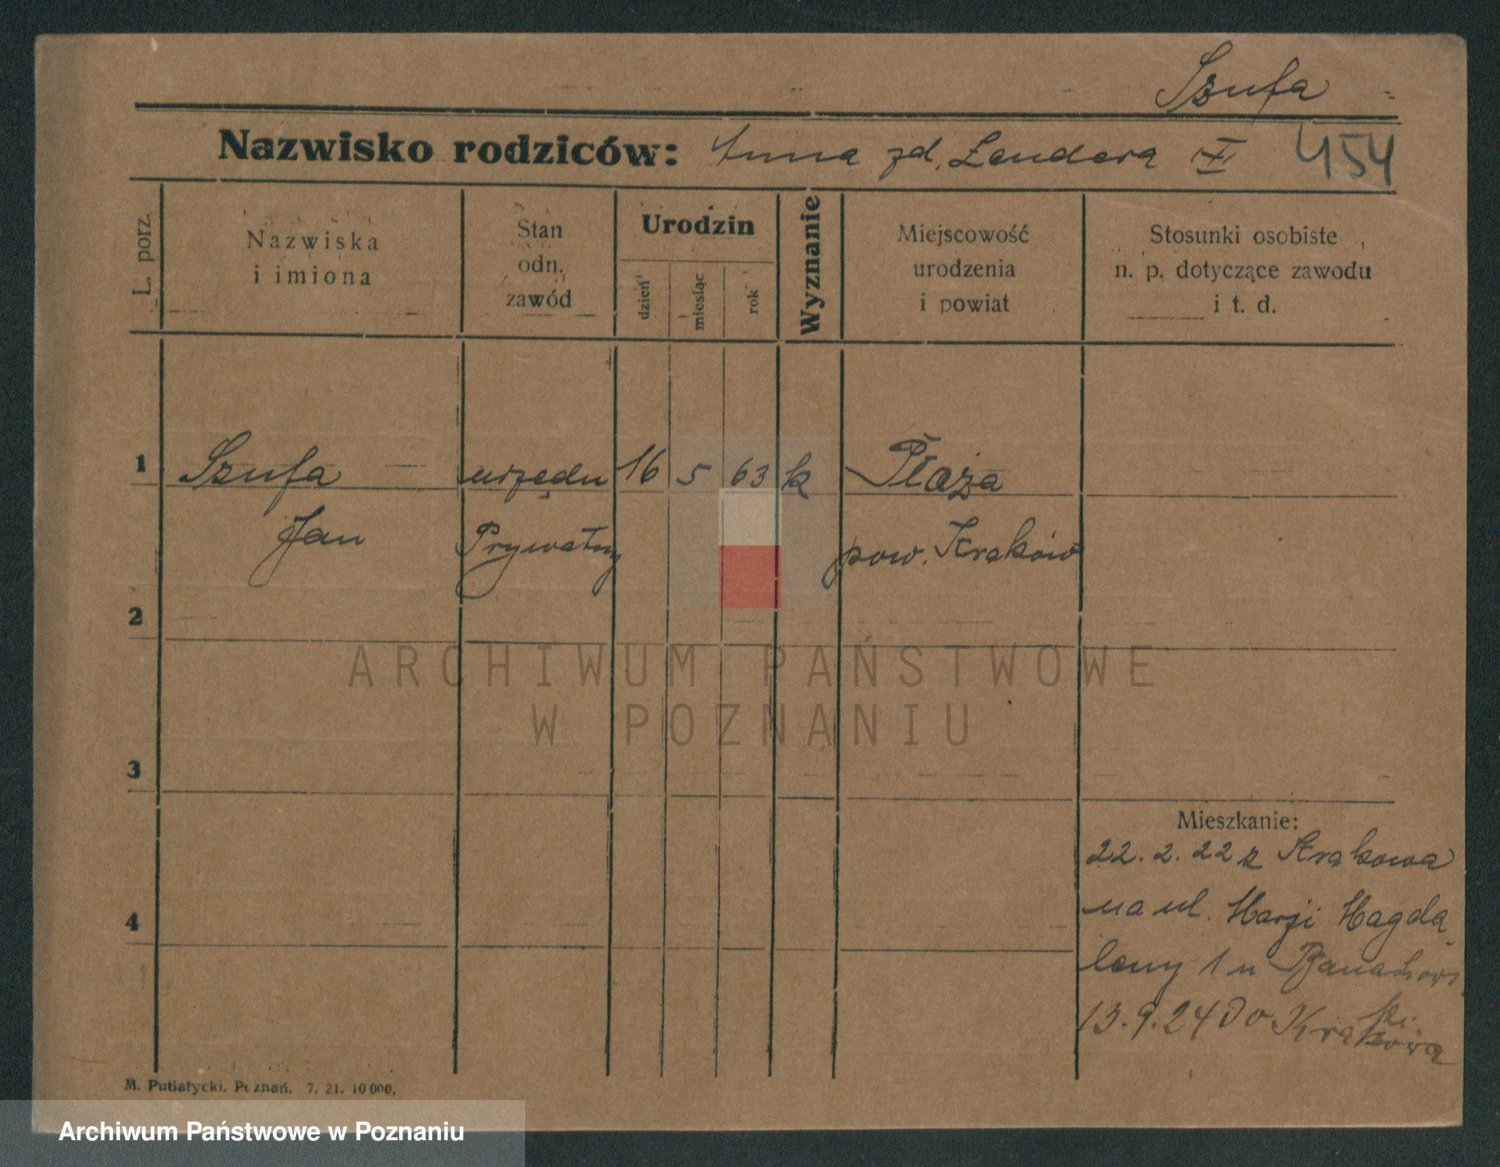 Szufa
Nazwisko rodziców: Anna zd. Landara
454
L. porz.
Nazwiska
i imiona
Stan
odn.
zawód
Urodzin
dzień
miesiąc
rok
Wyznanie
Miejscowość
urodzenia
i powiat
Stosunki osobiste
n. p. dotyczące zawodu
i t. d.
1 Szufa urzędn 16 5 63 k Płaza
Jan Prywatny pow. Kraków
2
ARCHIWUM PAŃSTWOWE
W POZNANIU
3
Mieszkanie:
22. 2. 22 z Krakowa
na ul. Marji Magda
4
leny 1 u Banachows
ki.
13. 9. 24 do Krakowa
M. Putiatycki, Poznań. 7. 21. 10 000.
Archiwum Państwowe w Poznaniu